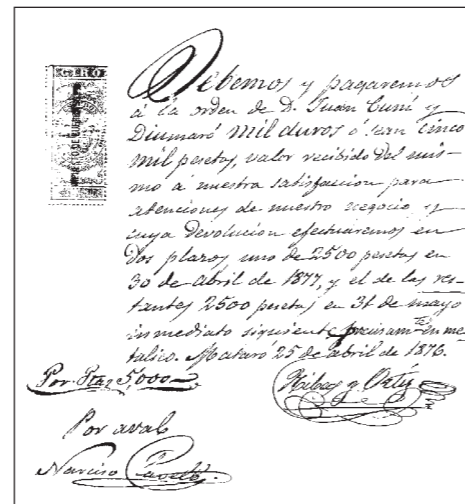 GIRO
Debemos y pagaremos
á la orden de D. Juan Cuní y
mil duros ó sean cinco
mil pesetas, valor recibido del mis-
mo á nuestra satisfaccion para
atenciones de nuestro negocio, y
cuya devolucion efectuaremos en
dos plazos uno de 2500 pesetas en
30 de abril de 1877, y el de las res-
tantes 2500 pesetas en 31 de mayo
inmediato siguiente precisamte en me-
talico. Mataró 25 de abril de 1876.
Por Ptas 5,000
Ribas y Ortiz
Por aval
Narciso